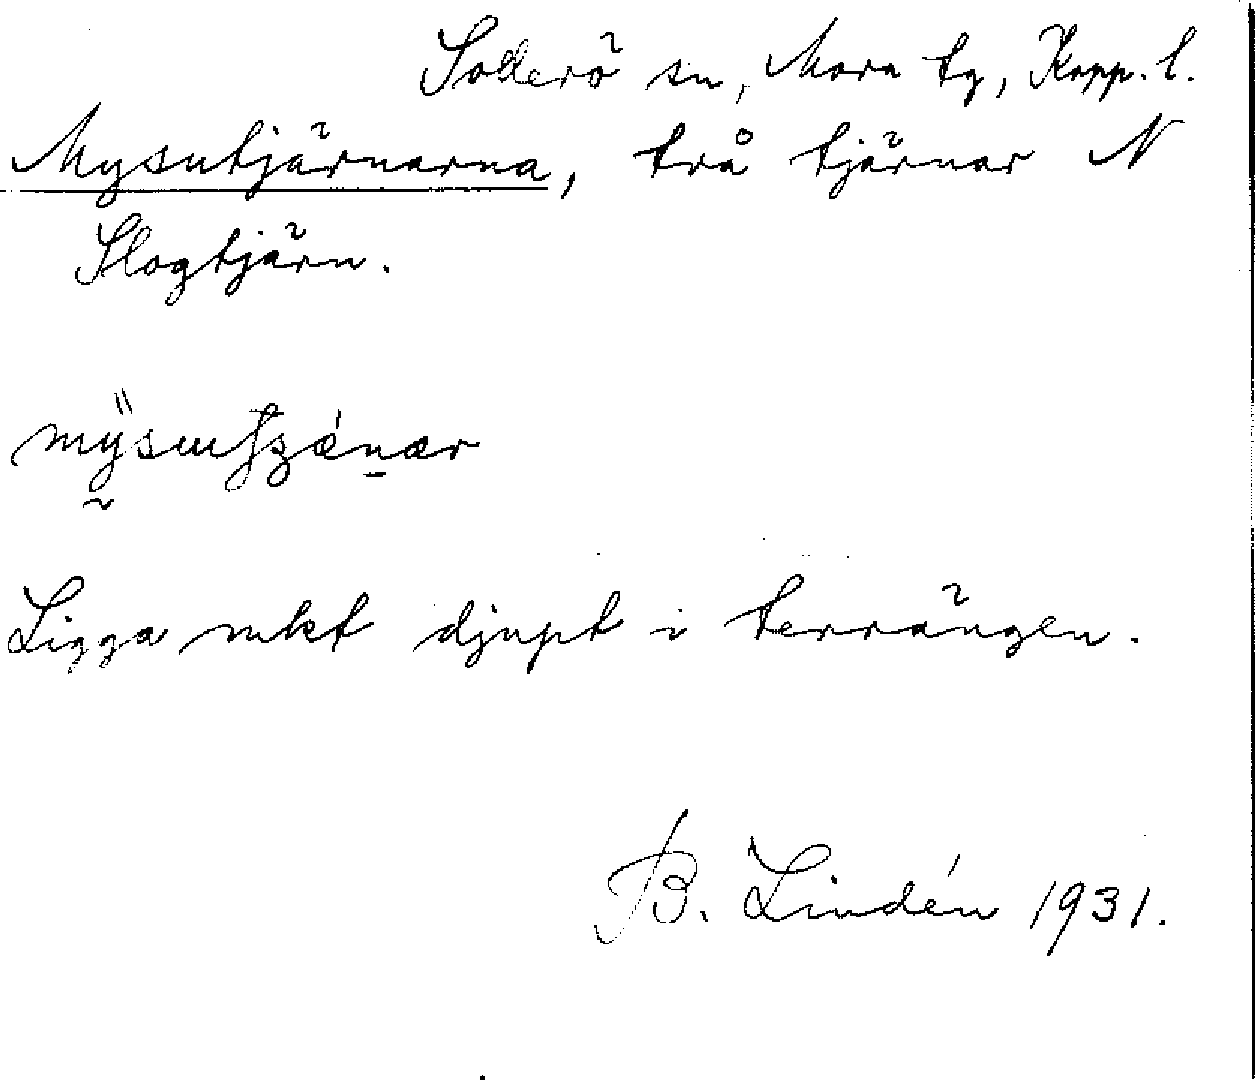 Sollerö sn, Mora tg, Kopp. l.
Mysutjärnarna, två tjärnar N
Slogtjärn.
Ligga mkt djupt i terrängen.
B. Lindén 1931.